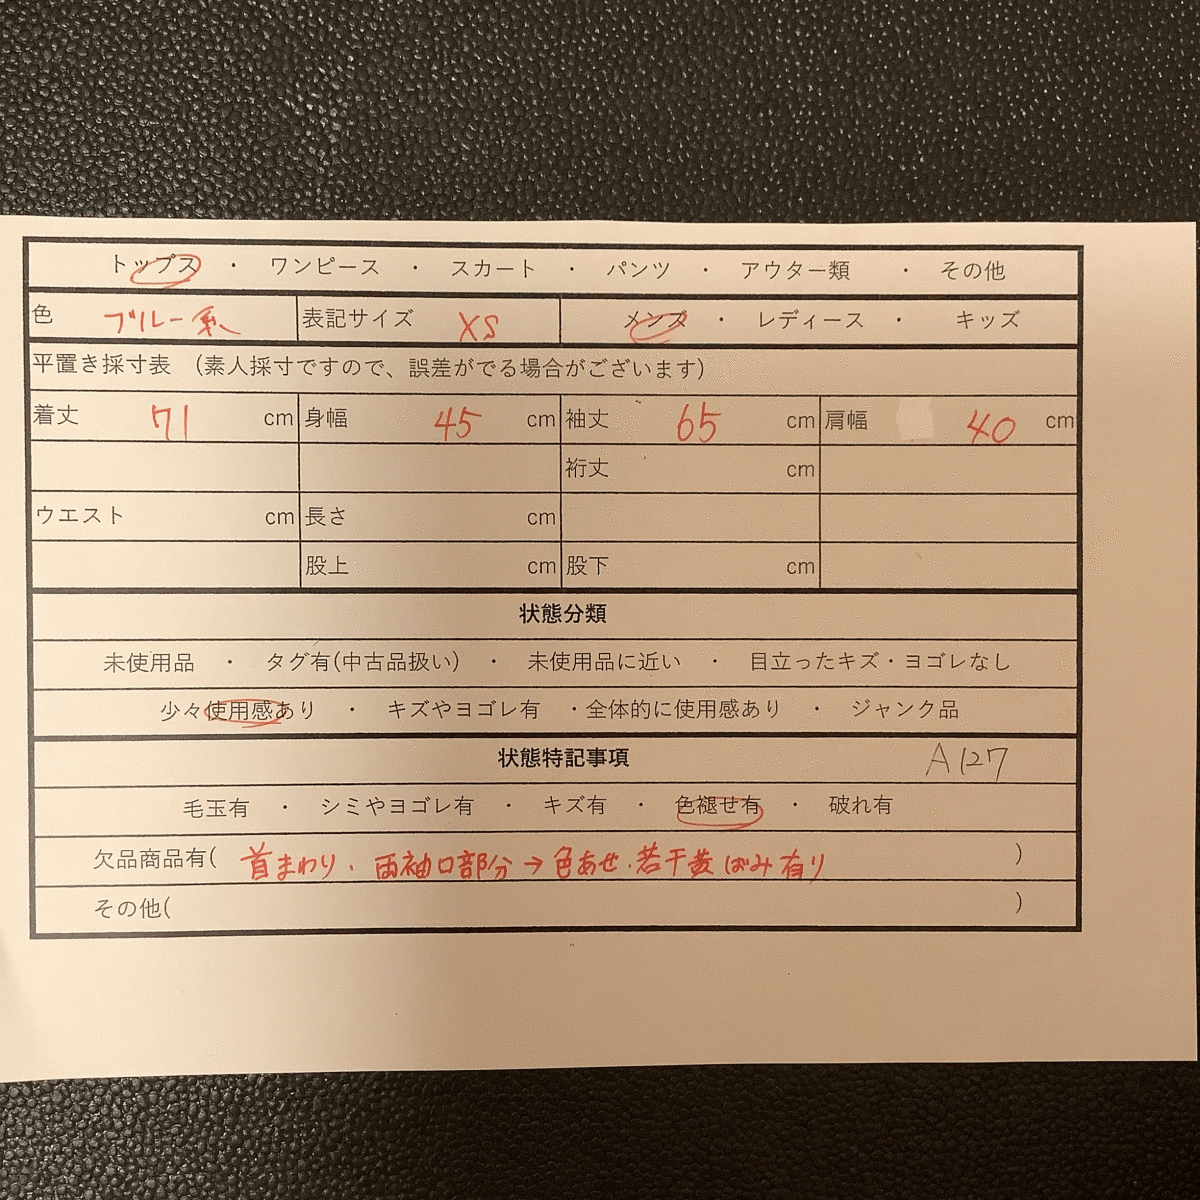 トップス ・ ワンピース ・ スカート ・ パンツ ・ アウター類 ・ その他
色 ブルー系 表記サイズ XS メンズ ・ レディース ・ キッズ
平置き採寸表 (素人採寸ですので、誤差がでる場合がございます)
着丈 71 cm 身幅 45 cm 袖丈 65 cm 肩幅 40 cm
裄丈 cm
ウエスト cm 長さ cm
股上 cm 股下 cm
状態分類
未使用品 ・ タグ有(中古品扱い) ・ 未使用品に近い ・ 目立ったキズ・ヨゴレなし
少々使用感あり ・ キズやヨゴレ有 ・全体的に使用感あり ・ ジャンク品
状態特記事項 A127
毛玉有 ・ シミやヨゴレ有 ・ キズ有 ・ 色褪せ有 ・ 破れ有
欠品商品有( 首まわり、両袖口部分→色あせ・若干黄ばみ有り )
その他( )